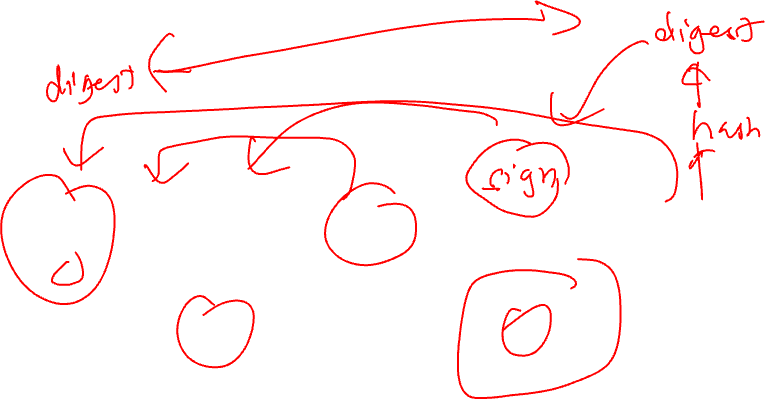 digest
digest
hash
sign